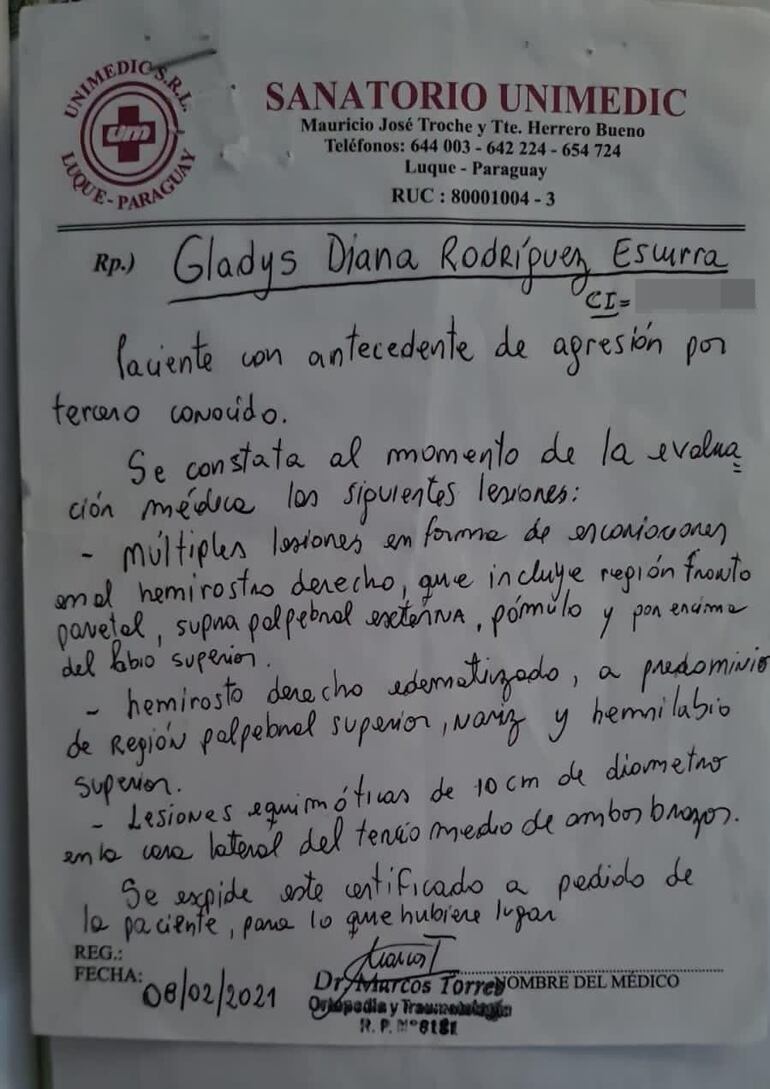 UNIMEDIC S.R.L.
um
LUQUE - PARAGUAY
SANATORIO UNIMEDIC
Mauricio José Troche y Tte. Herrero Bueno
Teléfonos: 644 003 - 642 224 - 654 724
Luque - Paraguay
RUC : 80001004 - 3
Rp.) Gladys Diana Rodríguez Escurra
CI=
Paciente con antecedente de agresión por
tercero conocido.
Se constata al momento de la evalua
ción médica las siguientes lesiones:
- múltiples lesiones en forma de escoriaciones
en el hemirostro derecho, que incluye región fronto
parietal, supra palpebral externa, pómulo y por encima
del labio superior.
- hemirosto derecho edematizado, a predominio
de Región palpebral superior, nariz y hemilabio
superior.
- Lesiones equimóticas de 10 cm de diametro
en la cara lateral del tercio medio de ambos brazos.
Se expide este certificado a pedido de
la paciente, para lo que hubiere lugar
REG.:
FECHA: 08/02/2021
Dr. Marcos Torres NOMBRE DEL MÉDICO
Ortopedia y Traumatología
R. P. Nº 8181